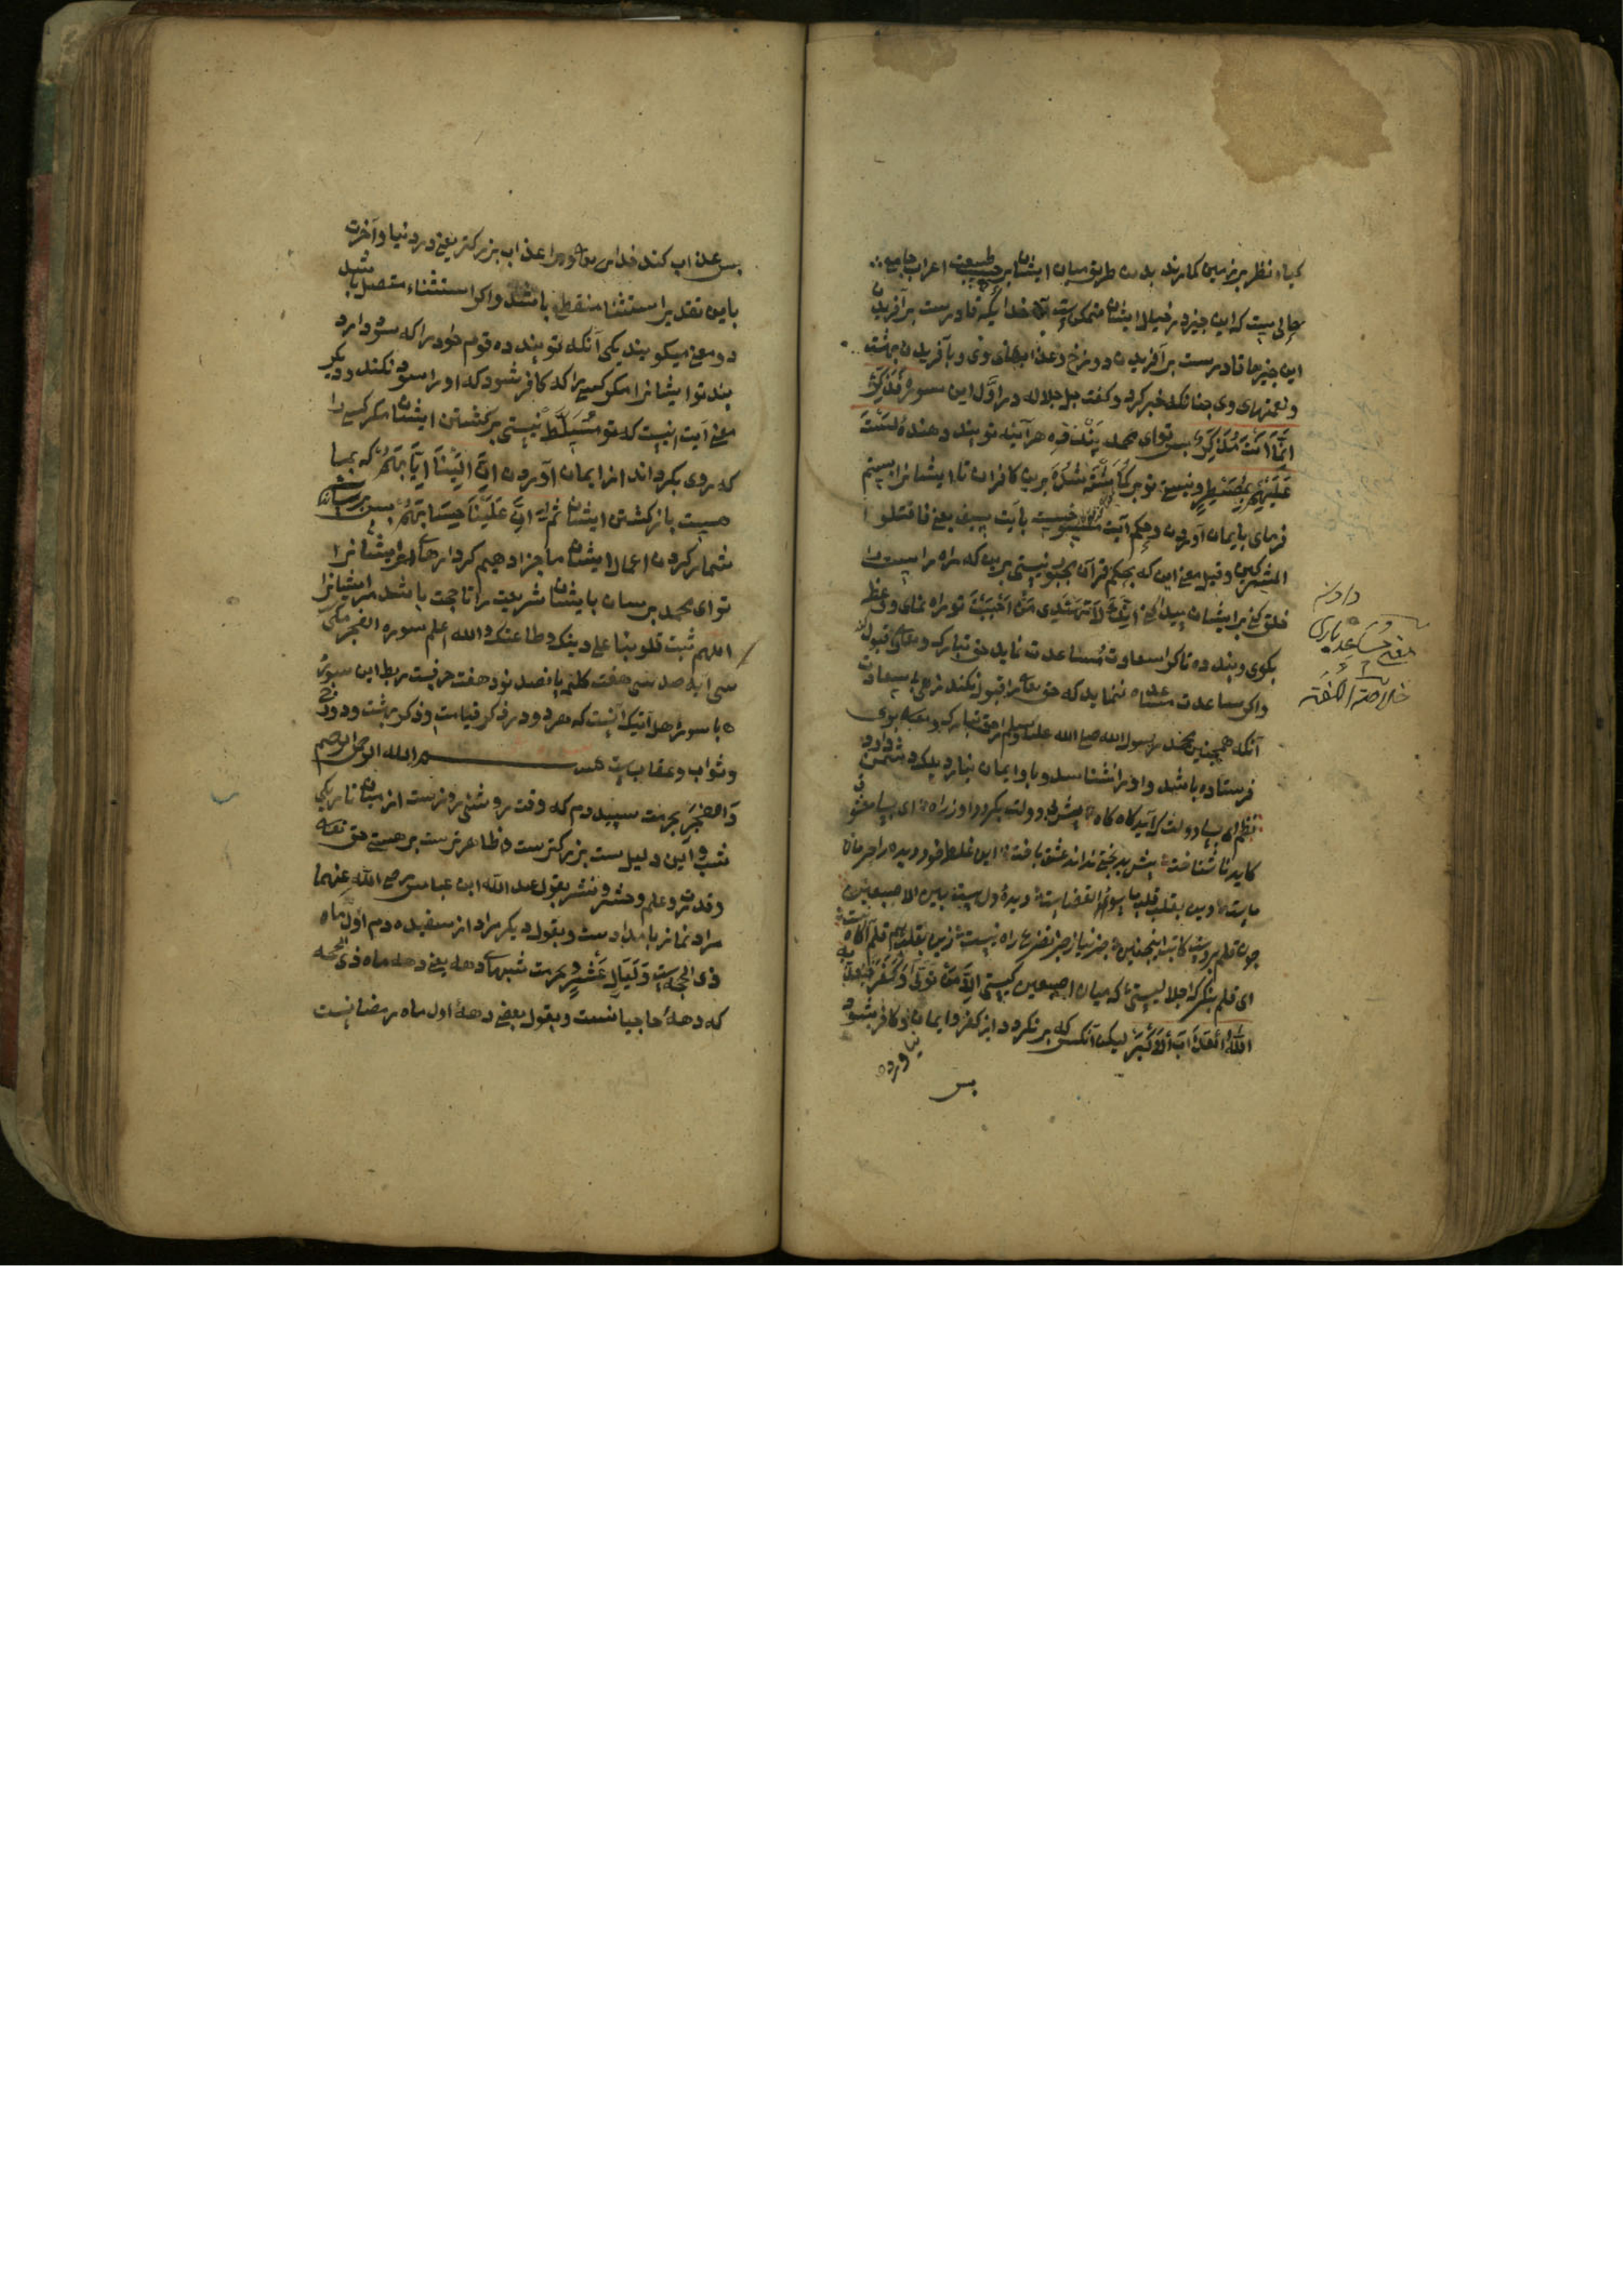 کیاه نظر بر زمین کمارند بدین طریق میان ایشان بر حسب طبیعت اعراب
حالی نیست که این چیز در خیال ایشان متمکن است خدایکه قادرست بر آفریدن
این چیزها قادرست بر آفریدن دوزخ و عذابهای وی و بآفریدن بهشت
و نعمتهای وی چنانکه خبر کرد و کفت جل جلاله در اوّل این سوره فَذَکِّرْ
اِنَّمَا اَنْتَ مُذَکِّرٌ بس توای محمد پند ده هر آینه تو پند دهندهٔ لَسْتَ
عَلَیْهِمْ بِمُصَیْطِرٍ و نیستی تو برکماشته شده برین کافران تا ایشانرا بستم
فرمای بایمان آوردن و حکم آیت منسوخست بآیت سیف یعنی فاقتلوا
المشرکین و قیل معنی این که بحکم قرآن مجبور نیستی برین که راه راست را
خلق کنی بر ایشان پیدا کنی اِنَّکَ لَا تَهْدِی مَنْ اَحْبَبْتَ تو راه نمای و وعظ
بکوی و پند ده تا کرا سعادت مساعدت نماید حق تبارک و تعالی قبول کند
واکر مساعدت ننماید که حق تعالی قبول نکند زهی سعادت
آنکه همچنین محمد رسول الله صلی الله علیه وسلم از حق تبارک و تعالی بوی
فرستاده باشد و او را نشناسد و باو ایمان نیارد بلکه دشمن دارد
نظم ای بسا دولت که آید کاه کاه پیش بی دولت بکردد او ز راه ای بسا معشوق
کاید ناشناخته پیش بدبختی نداند عشق باخت این غلط خود دیده را حرمان
ماست وین تقلب قلب را سوء القضاست دیدهٔ دل هست بین الاصبعین
چون قلم در دست کاتب اینچنین جز نیاز و جز تضرع راه نیست زین تقلب هر قلم آکاه نیست
ای قلم بنکر کر اجلالیستی که میان اصبعین کیستی اِلَّا مَنْ تَوَلَّی وَکَفَرَ فَیُعَذِّبُهُ
اللّٰهُ الْعَذَابَ الْاَکْبَرَ لیکن آنکس که برنکردد از کفر و ایمان نیاورده و کافر شود
بس
دادن
معنی مساعده یاری
خلاصة اللغة
بس عذاب کند خدای تعالی ورا عذاب بزرکتر یعنی در دنیا و آخرت
باین تقدیر استثنا منقطع باشد واکر استثناء متصل باشد
دو معنی میکویند یکی آنکه تو پند ده قوم خود را که سود دارد
پند تو ایشانرا مکر کسیرا که کافر شود که او را سود نکند و دیکر
معنی آیت اینست که تو مُسَلَّط نیستی برکشتن ایشان مکر کسی را
که روی بکرداند از ایمان آوردن اِنَّ اِلَیْنَا اِیَابَهُمْ که بما
هست باز کشتن ایشان ثُمَّ اِنَّ عَلَیْنَا حِسَابَهُمْ بس بر ماست
شمار کردن اعمال ایشان ما جزا دهیم کردارهای ایشانرا
توای محمد برسان بایشان شریعت را تا حجت باشد مر ایشانرا
اللهم ثبت قلوبنا علی دینک و طاعتک والله اعلم سوره الفجر مکی
سی آیه صد سی هفت کلمه بانصد نود هفت حرفست ربط این سوره
با سورهٔ هل اتیک آنست که هر دو در ذکر قیامت و ذکر بهشت و دوزخ
و ثواب و عقابست بسم الله الرحمن الرحیم
وَالْفَجْرِ بحرمت سپیده دم که وقت روشنی روزست از میان تاریکی
شب و این دلیلست بزرکترست و ظاهرترست بر هستی حق تعالی
و قدرت و علم و حشر و نشر بقول عبد الله ابن عباس رضی الله عنهما
مراد نماز بامدادست و بقول دیکر مراد از سفیده دم اول ماه
ذی الحجه است وَلَیَالٍ عَشْرٍ و بحرمت شبهای دهه یعنی دهه ماه ذی الحجه
که دههٔ حاجیانست و بقول بعضی دههٔ اول ماه رمضانست